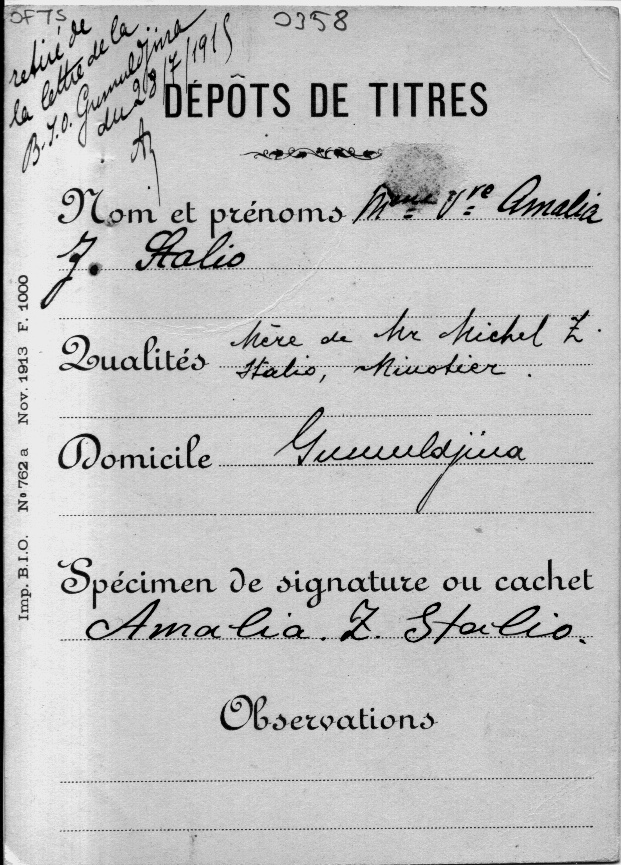 OFTS
0358
retiré de
la lettre de la
B.I.O. Gumuldjina
du 28/7/1915
DÉPÔTS DE TITRES
Nom et prénoms Mme Vve Amalia
Z. Stalio
Qualités Mère de Mr Michel Z.
Stalio, Minotier.
Domicile Gumuldjina
Spécimen de signature ou cachet
Amalia. Z. Stalio.
Observations
Imp. B.I.O. No 762 a Nov. 1913 F. 1000